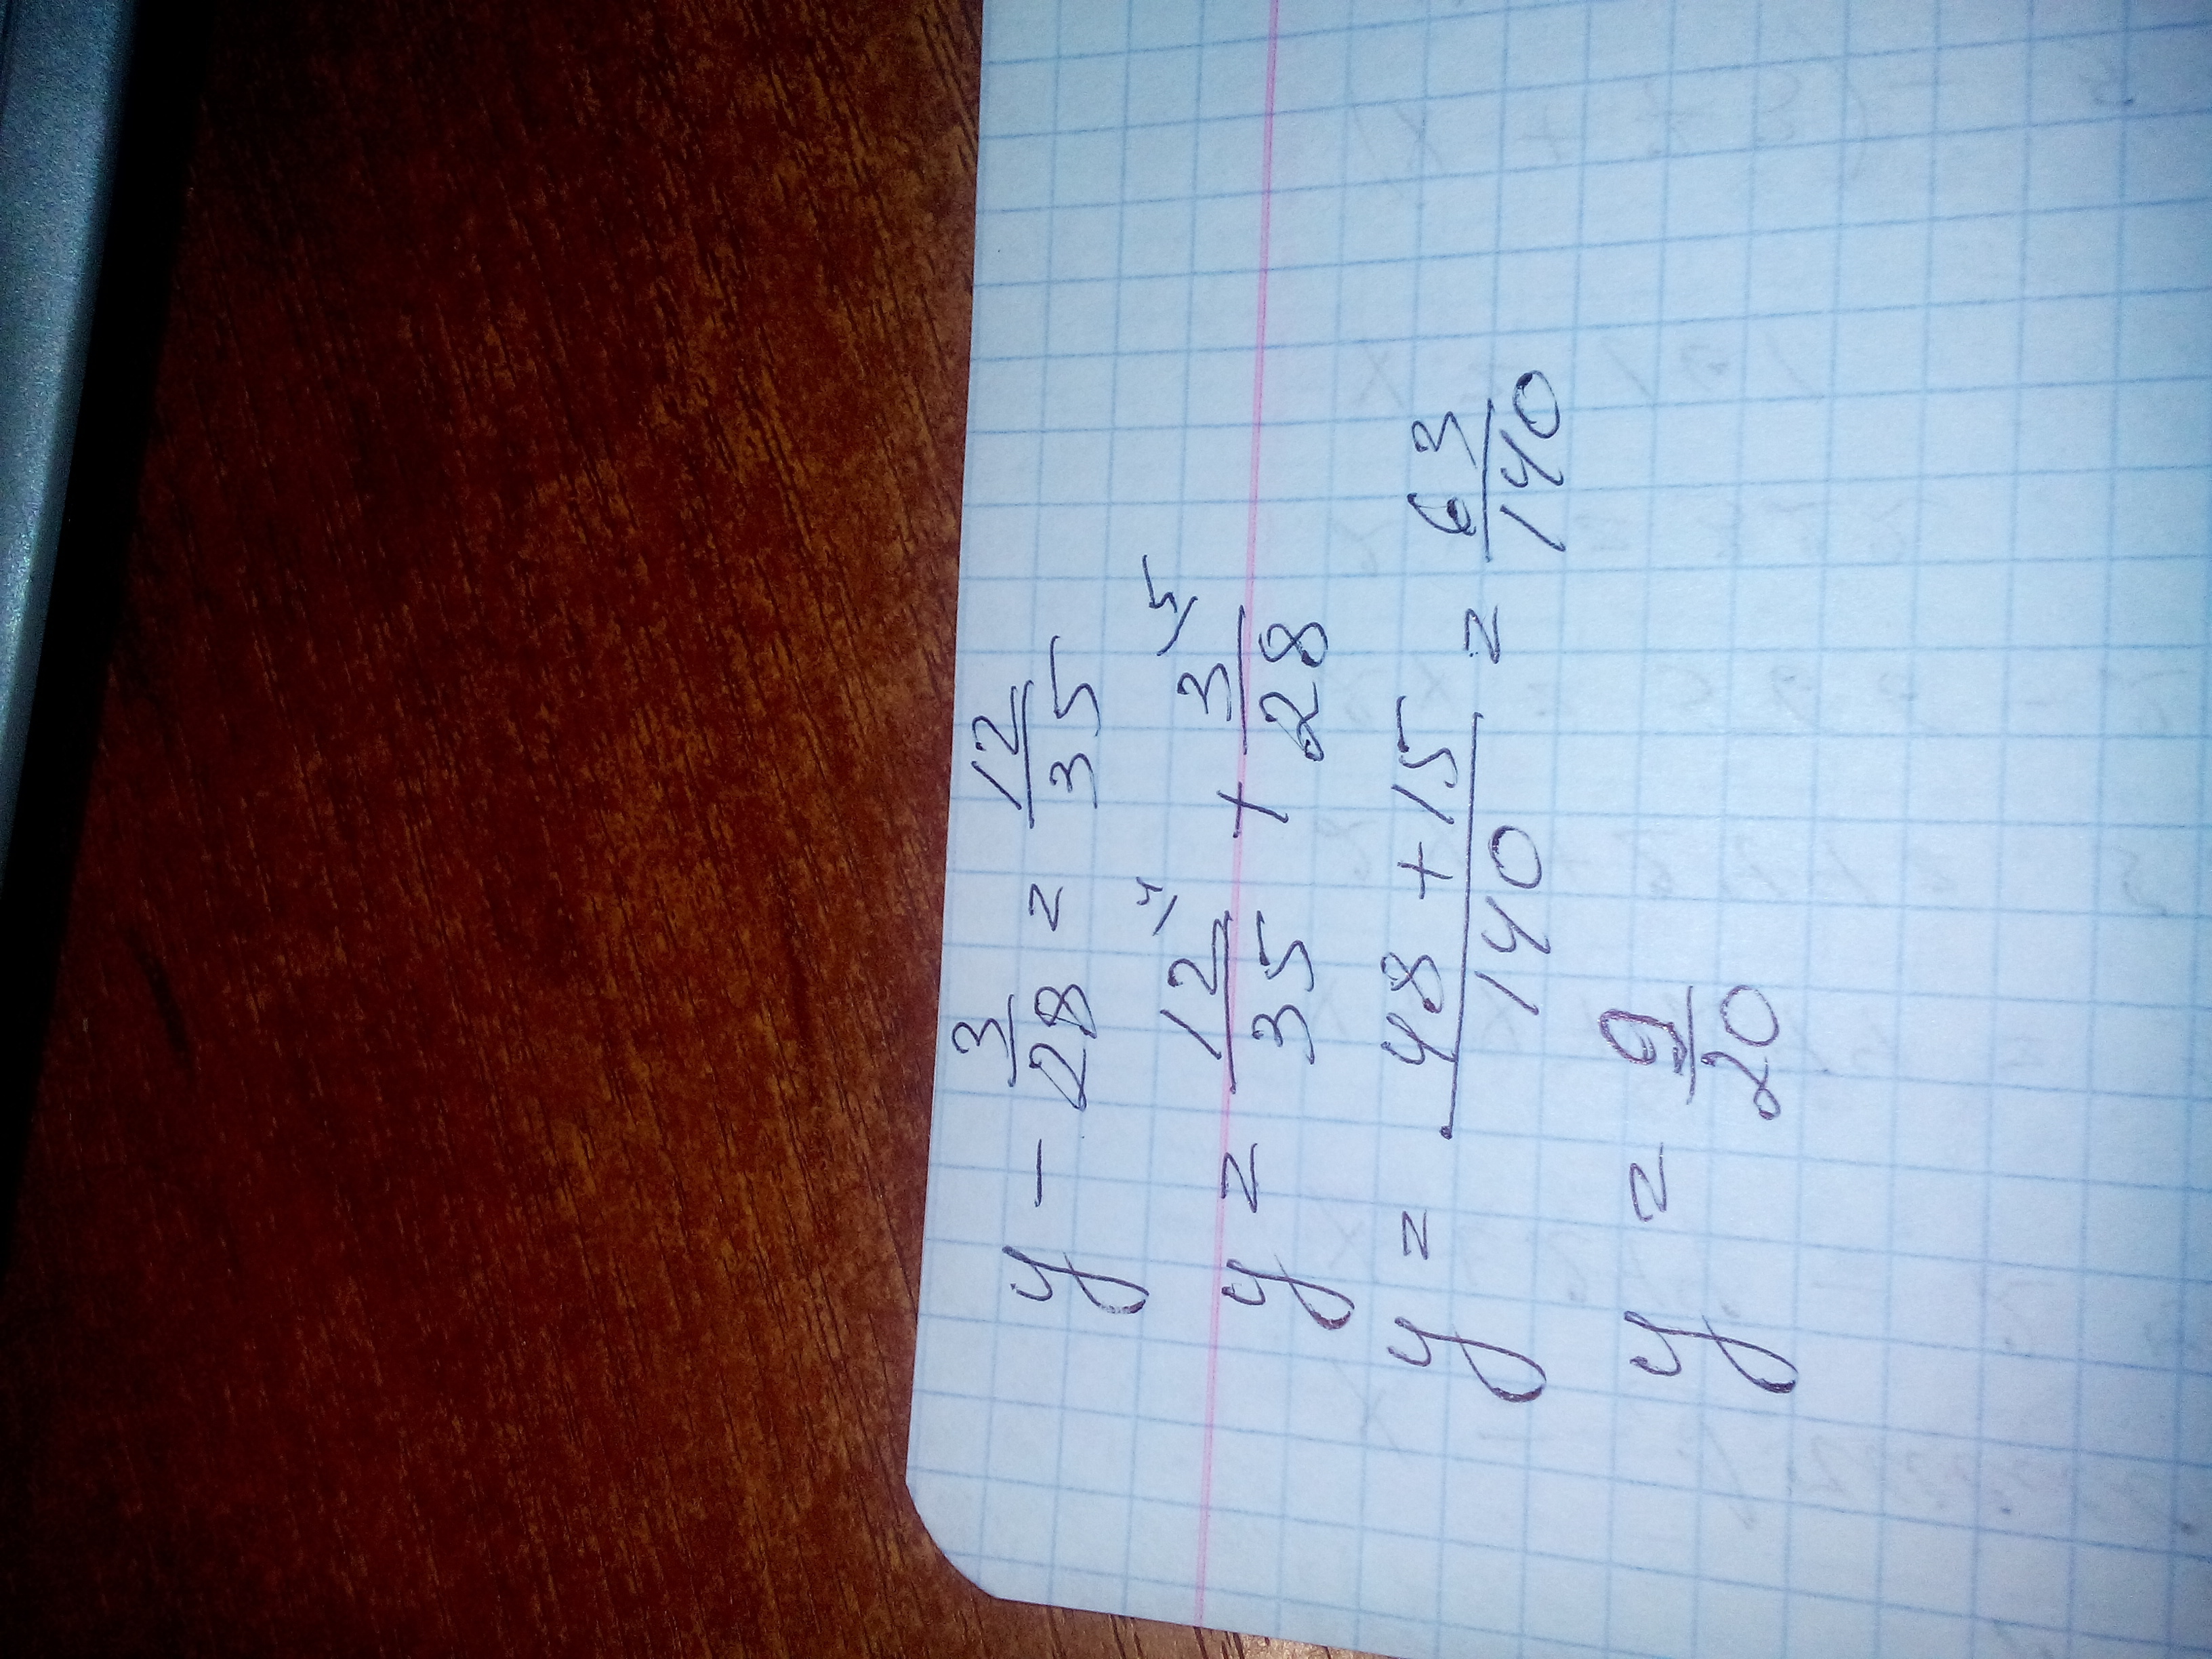 y - 3/28 = 12/35
y = 12/35 \4 + 3/28 \5
y = 48 + 15/140 = 63/140
y = 9/20